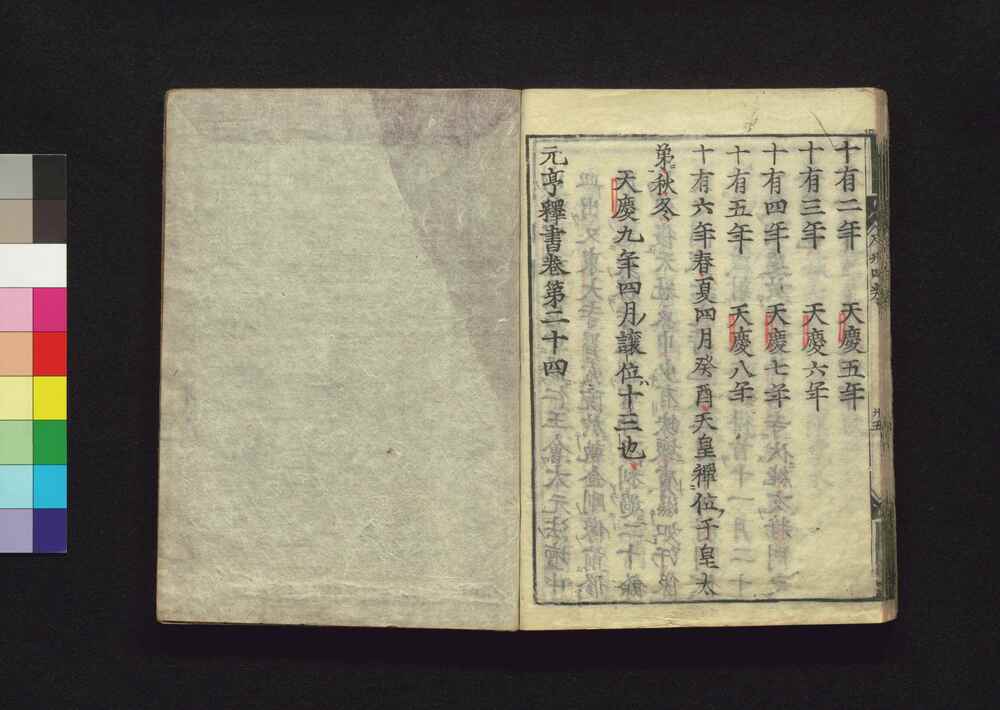 十有二年 天慶五年
十有三年 天慶六年
十有四年 天慶七年
十有五年 天慶八年
十有六年春夏四月癸酉天皇禪位于皇太
弟秋冬
天慶九年四月讓位十三也
元亨釋書卷第二十四